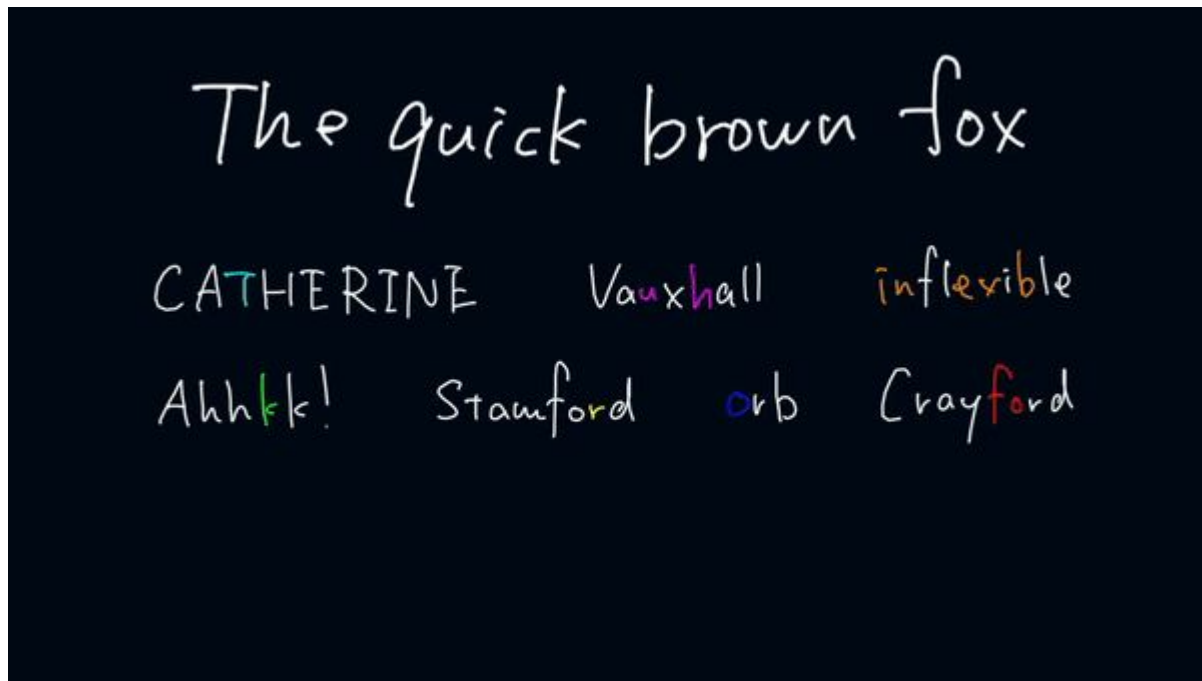 The quick brown fox
CATHERINE Vauxhall inflexible
Ahhkk! Stamford orb Crayford